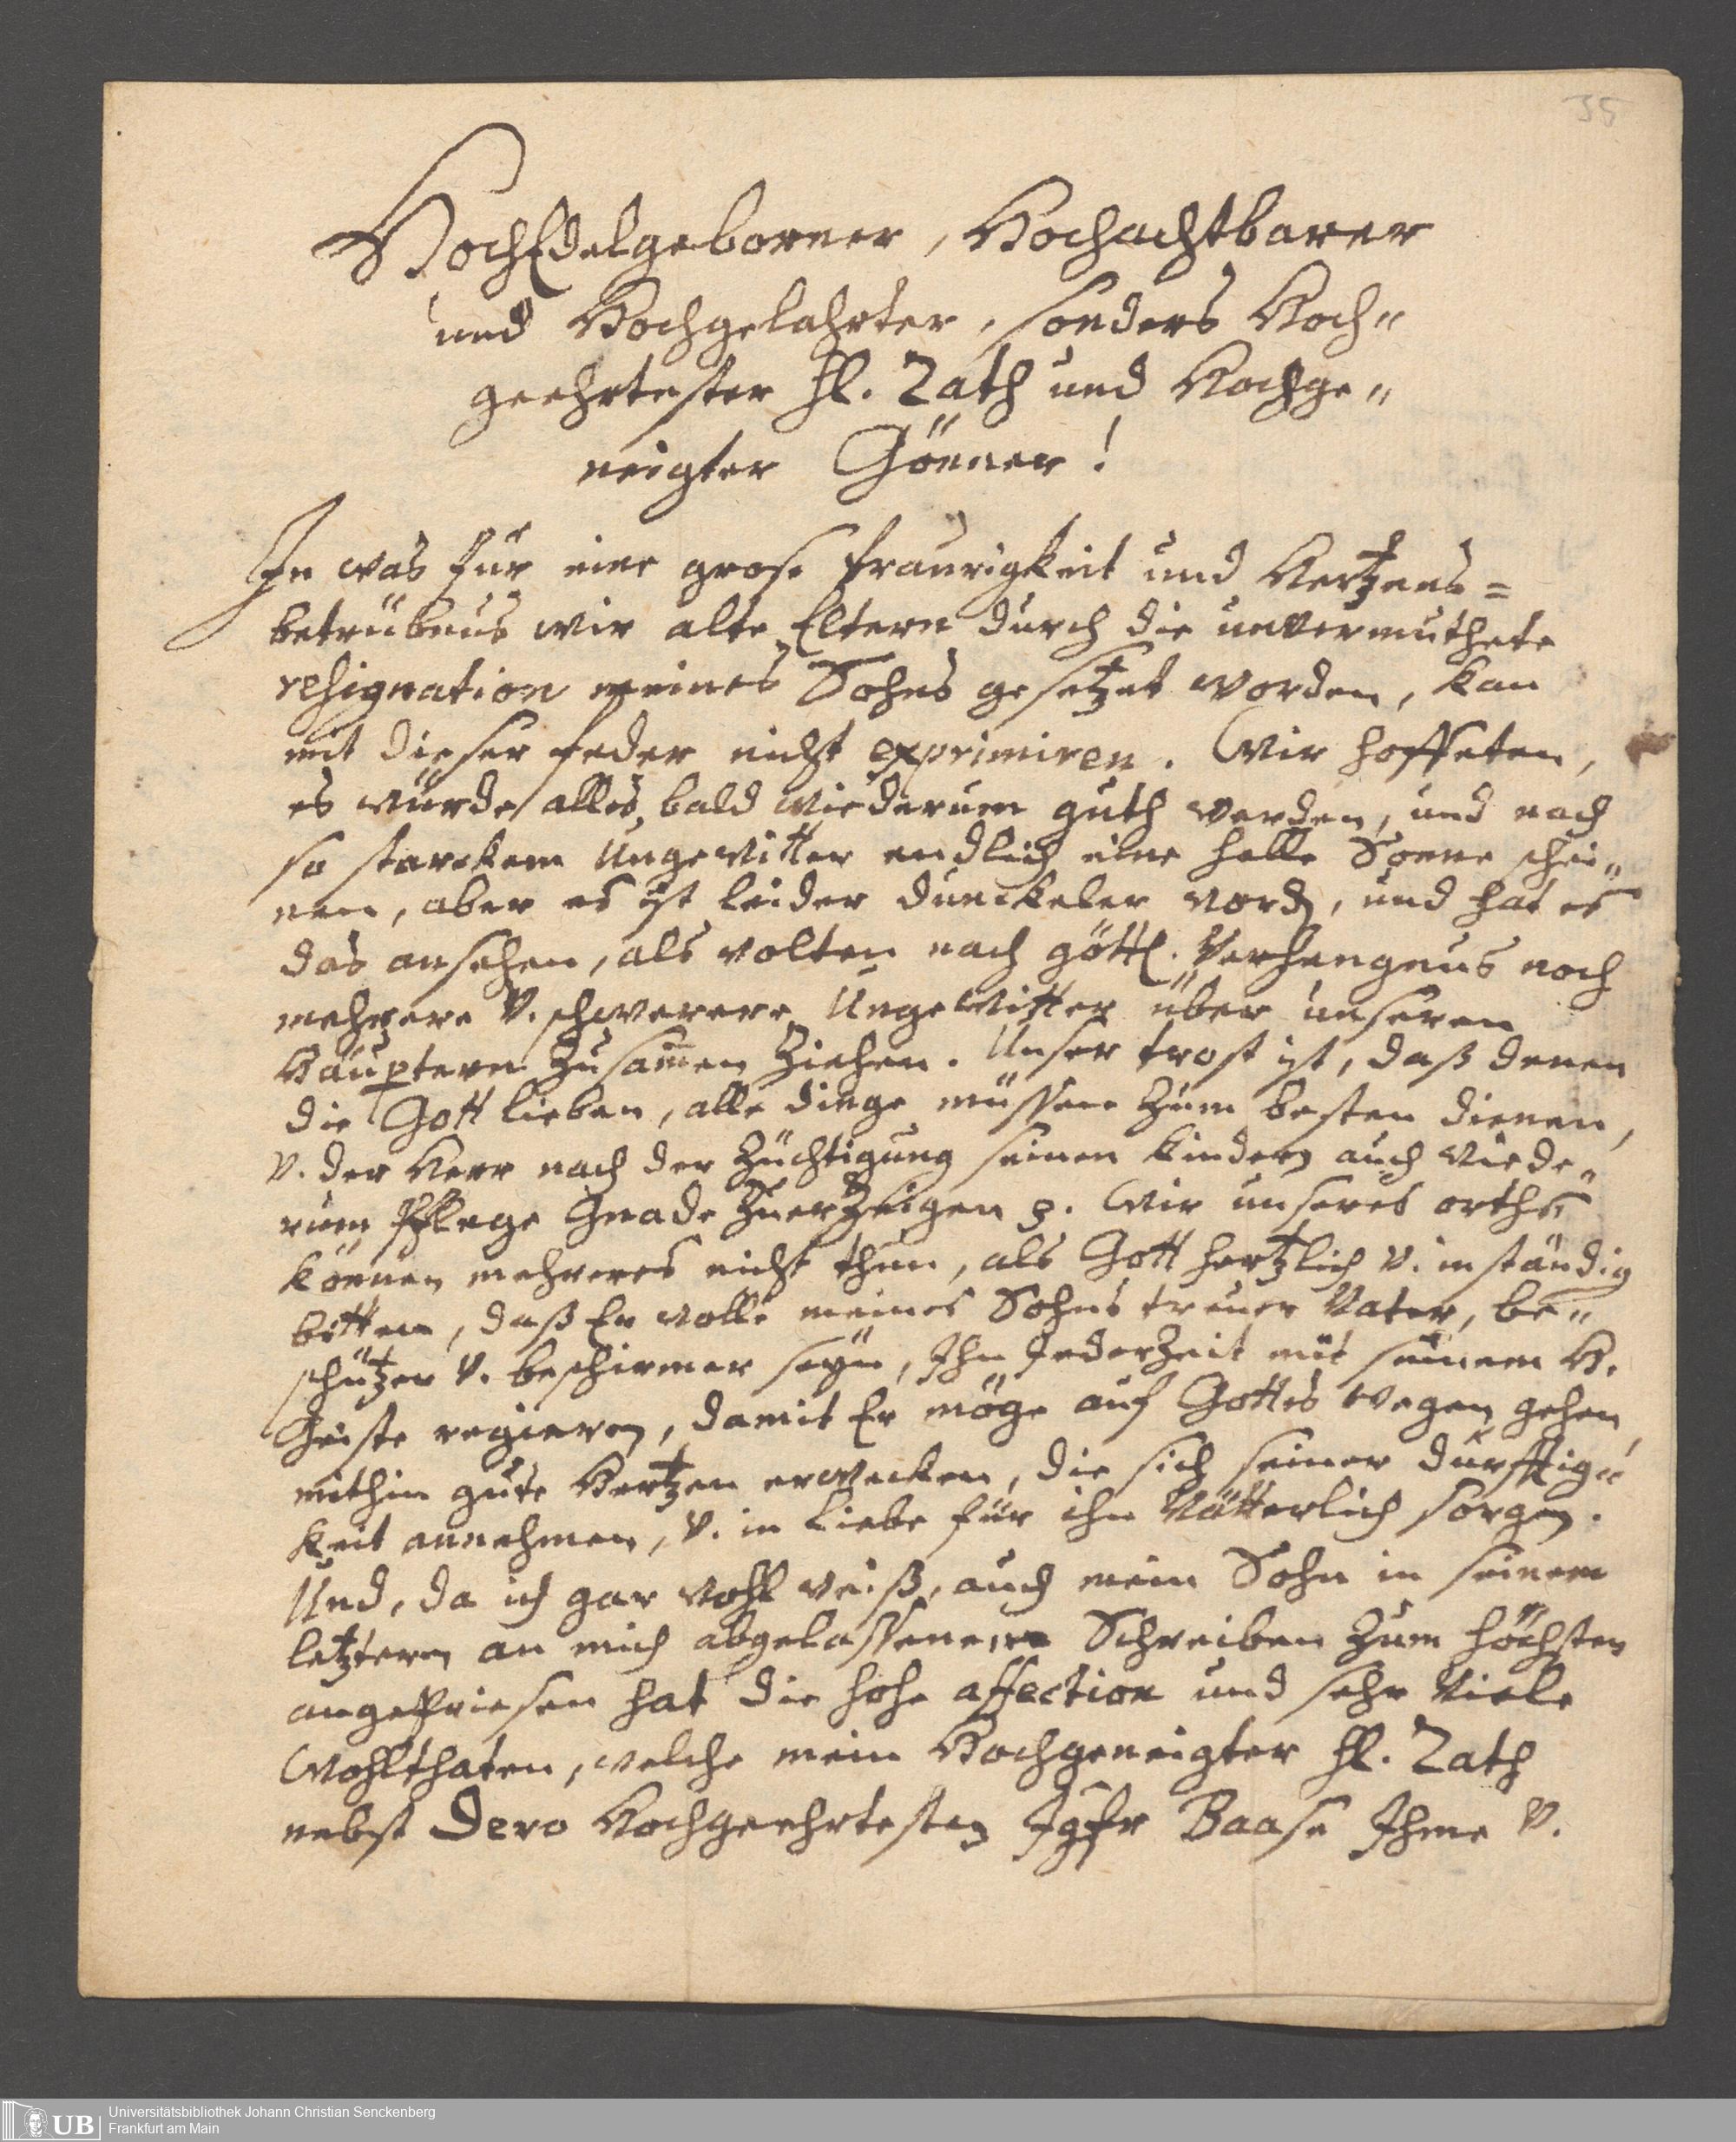 35
HochEdelgeborner, Hochachtbarer
und Hochgelahrter, sonders Hoch"
geehrtester Hl. Rath und Hochge"
neigter Gönner!
In was für eine grose traurigkeit und Hertzens=
betrübnus wir alte Eltern durch die unvermuthete
resignation meines Sohns gesetzet worden, kan
mit dieser feder nicht exprimiren. Wir hoffeten,
es würde alles bald wiederum guth werden, und nach
so starckem Ungewitter endlich eine helle Sonne schei"
nen, aber es ist leider dunckeler word, und hat es
das ansehen, als wolten nach göttl. Verhengnus noch
mehrere v. schwerere Ungewitter über unseren
Häuptern zusamen ziehen. Unser trost ist, daß denen
die Gott lieben, alle dinge müssen zum besten dienen,
v. der Herr nach der Züchtigung seinen Kindern auch wiede"
rum pflege Gnade zuerzeigen p. Wir unseres orths
können mehreres nicht thun, als Gott hertzlich v. inständig
bitten, daß Er wolle meines Sohns treuer Vater, be"
schützer v. beschirmer seyn, Ihn Jederzeit mit seinem H.
Geiste regieren, damit Er möge auf Gottes wegen gehen,
mithin gute Hertzen erwecken, die sich seiner durfftig"
keit annehmen, v. in Liebe für ihn Vätterlich sorgen.
Und, da ich gar wohl weiß, auch mein Sohn in seinem
letztern an mich abgelassenen Schreiben zum höchsten
angepriesen hat die hohe affection und sehr Viele
Wohlthaten, welche mein Hochgeneigter Hl. Rath
nebst Dero Hochgeehrtesten Jgfr Baase Ihme v.
UB
Universitätsbibliothek Johann Christian Senckenberg
Frankfurt am Main